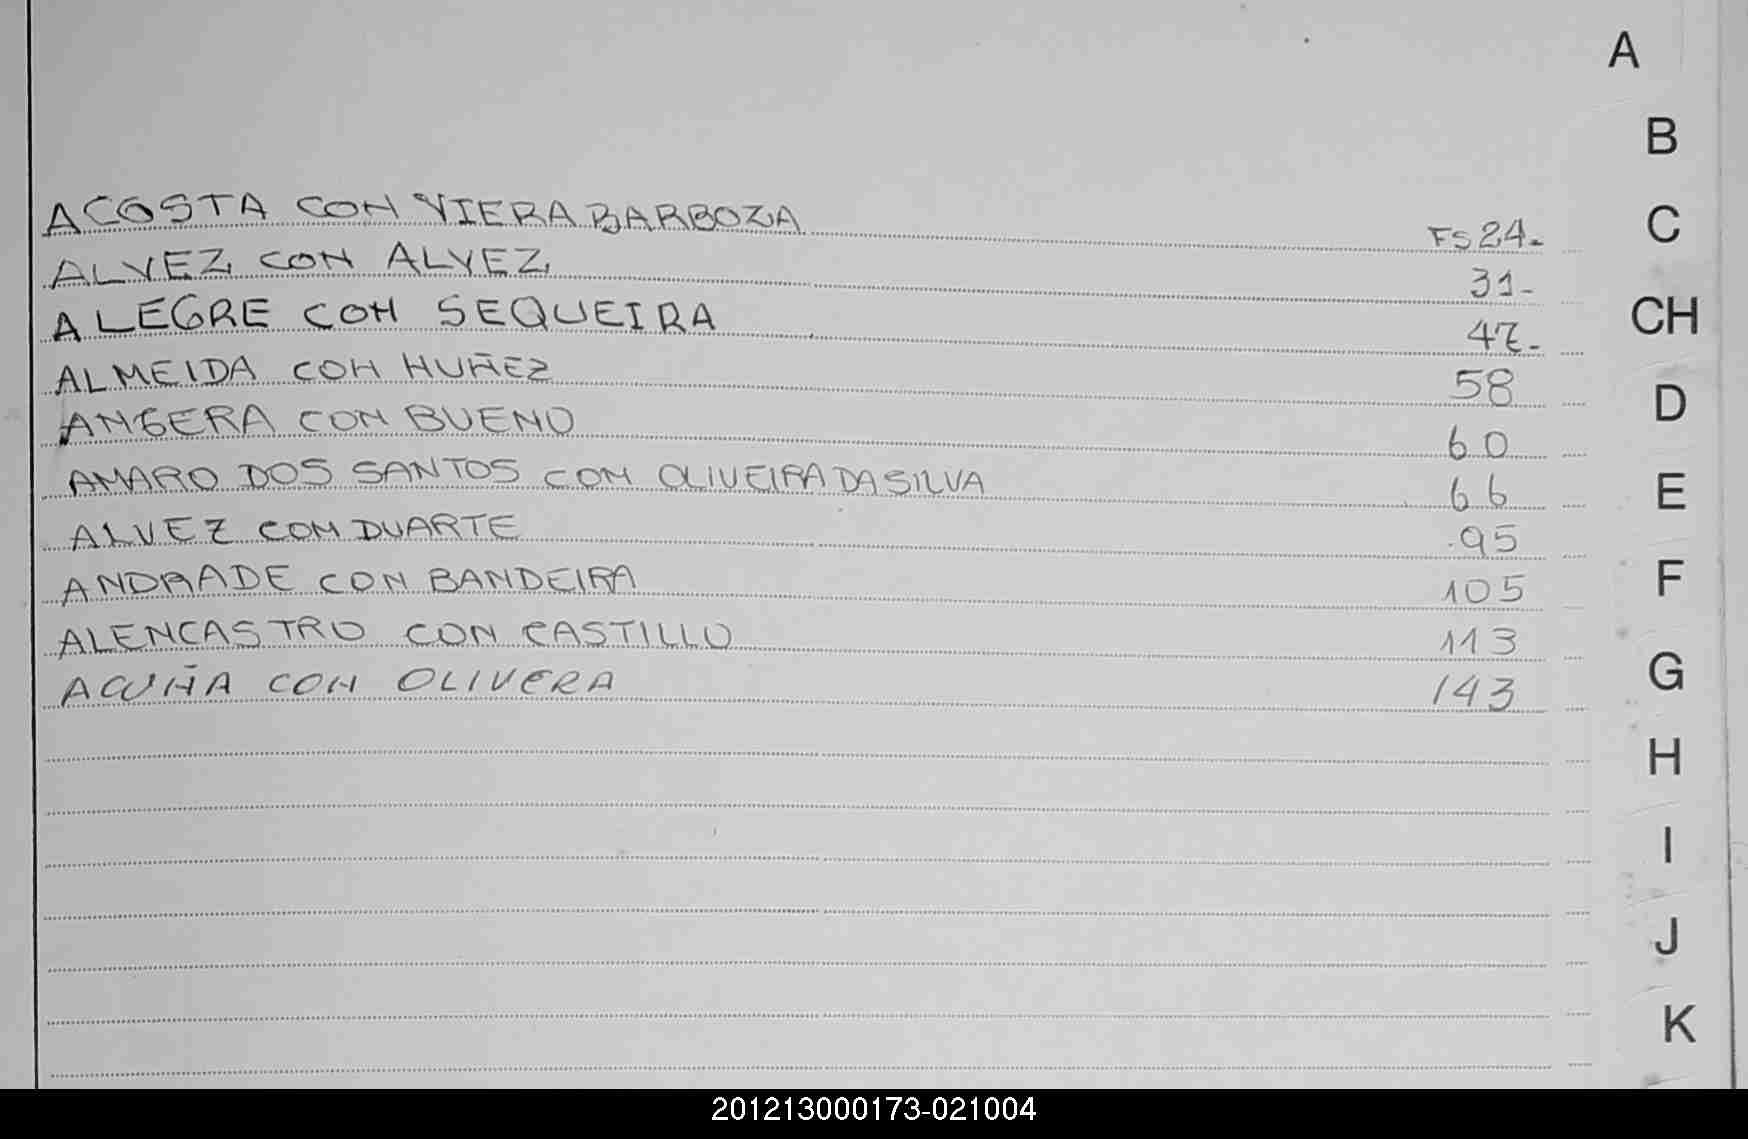 A
B
ACOSTA CON VIERA BARBOZA FS 24.- C
ALVEZ CON ALVEZ 31-
ALEGRE CON SEQUEIRA 47.- CH
ALMEIDA CON NUÑEZ 58 D
ANGERA CON BUENO 60
AMARO DOS SANTOS CON OLIVEIRA DA SILVA 66 E
ALVEZ CON DUARTE 95
ANDRADE CON BANDEIRA 105 F
ALENCASTRO CON CASTILLO 113
ACUÑA CON OLIVERA 143 G
H
I
J
K
201213000173-021004